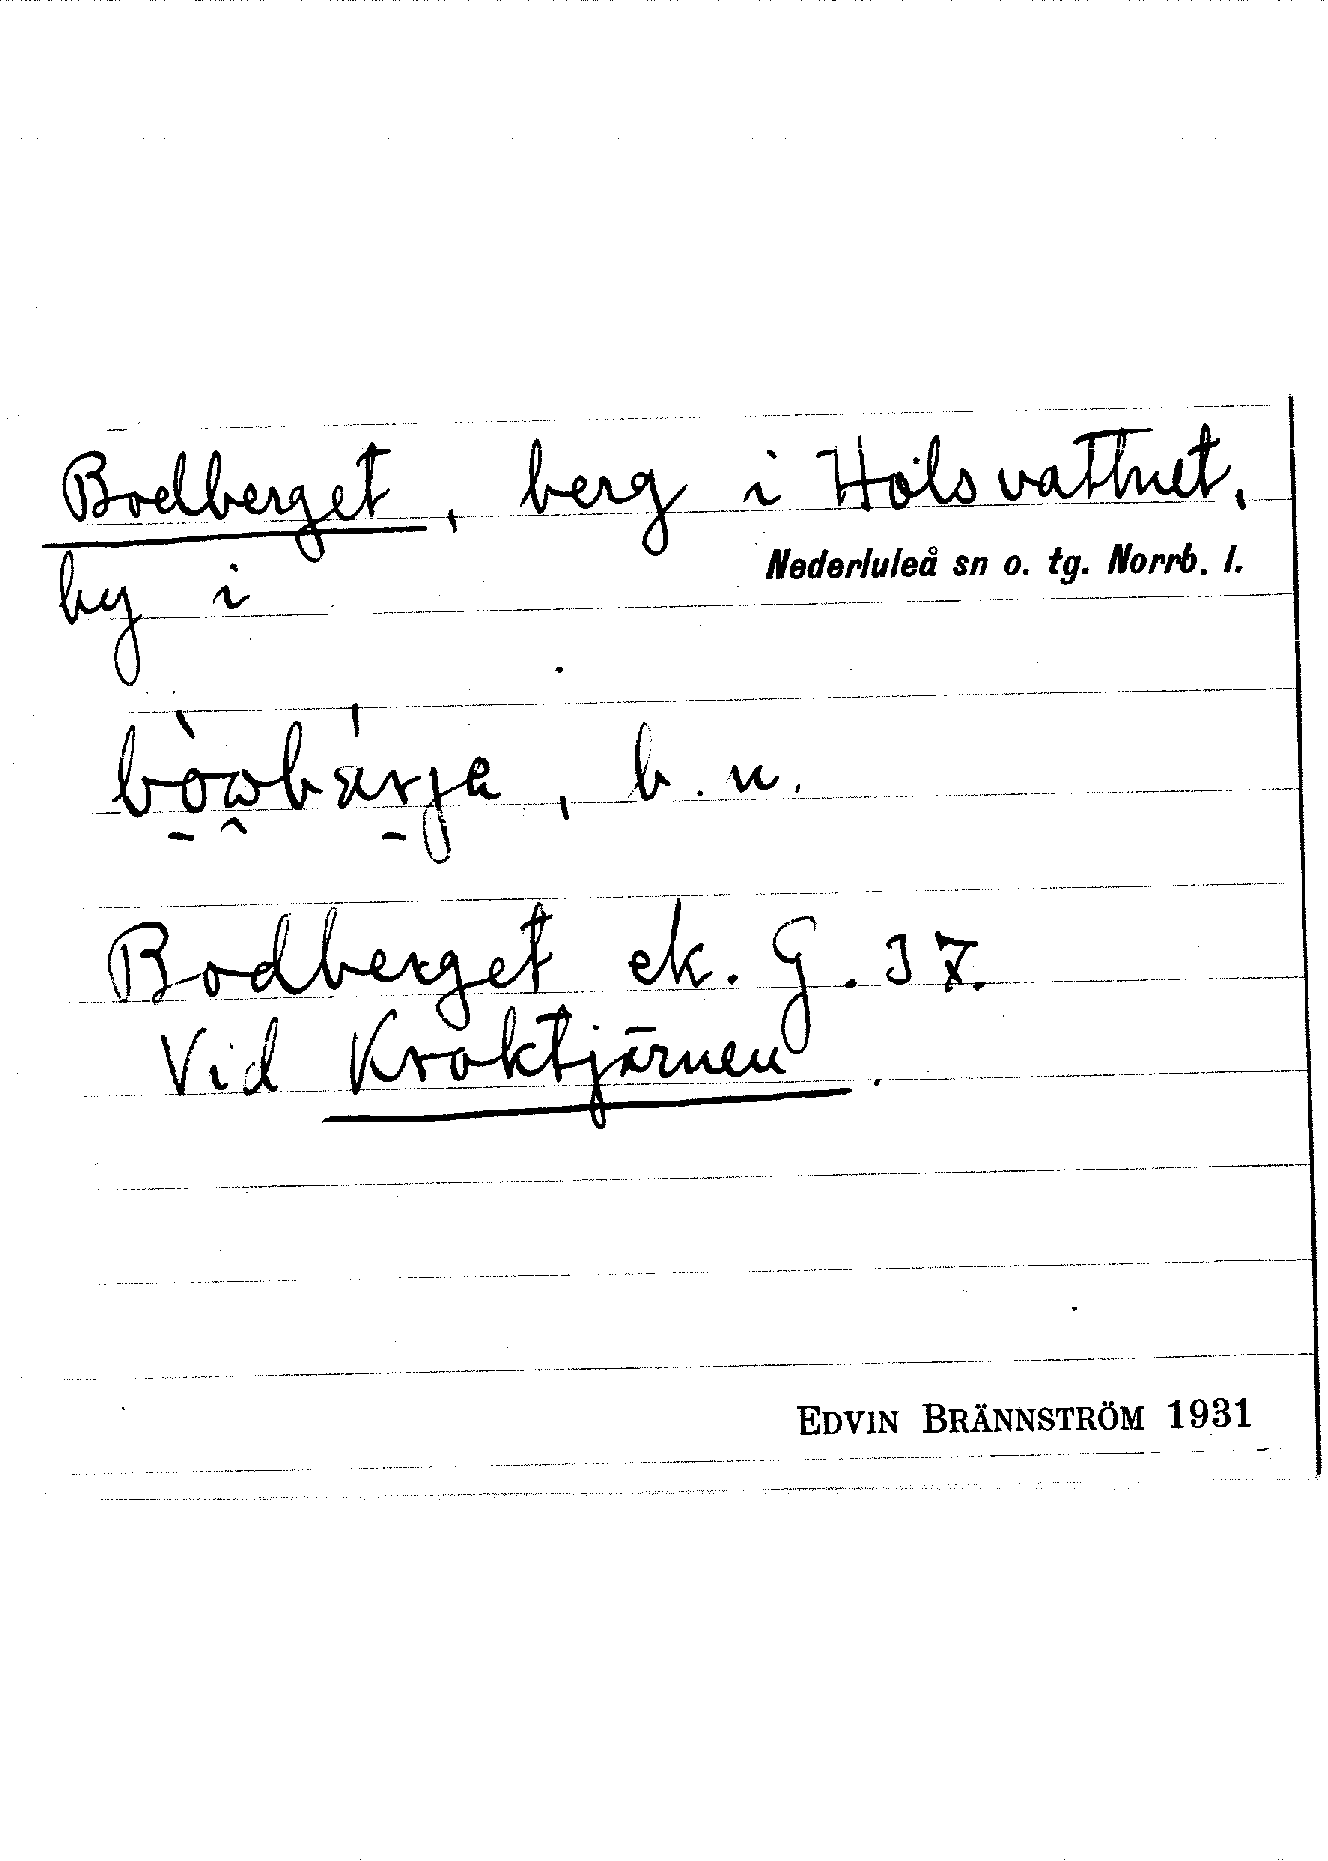 Bodberget, berg i Hålsvattnet,
by i Nederluleå sn o. tg. Norrb. l.
bòωbárja, b. n.
Bodberget ek. G. 37.
Vid Kroktjärnen.
EDVIN BRÄNNSTRÖM 1931